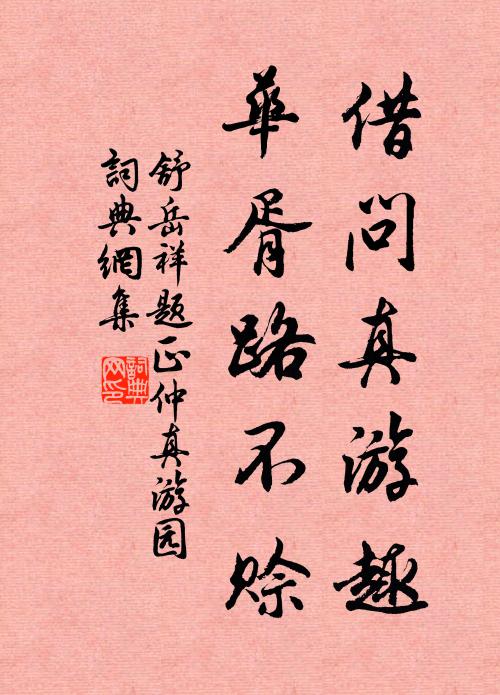 借问真游趣
華胥路不赊
舒岳祥题正仲真游园
詞典網集
詞典网印